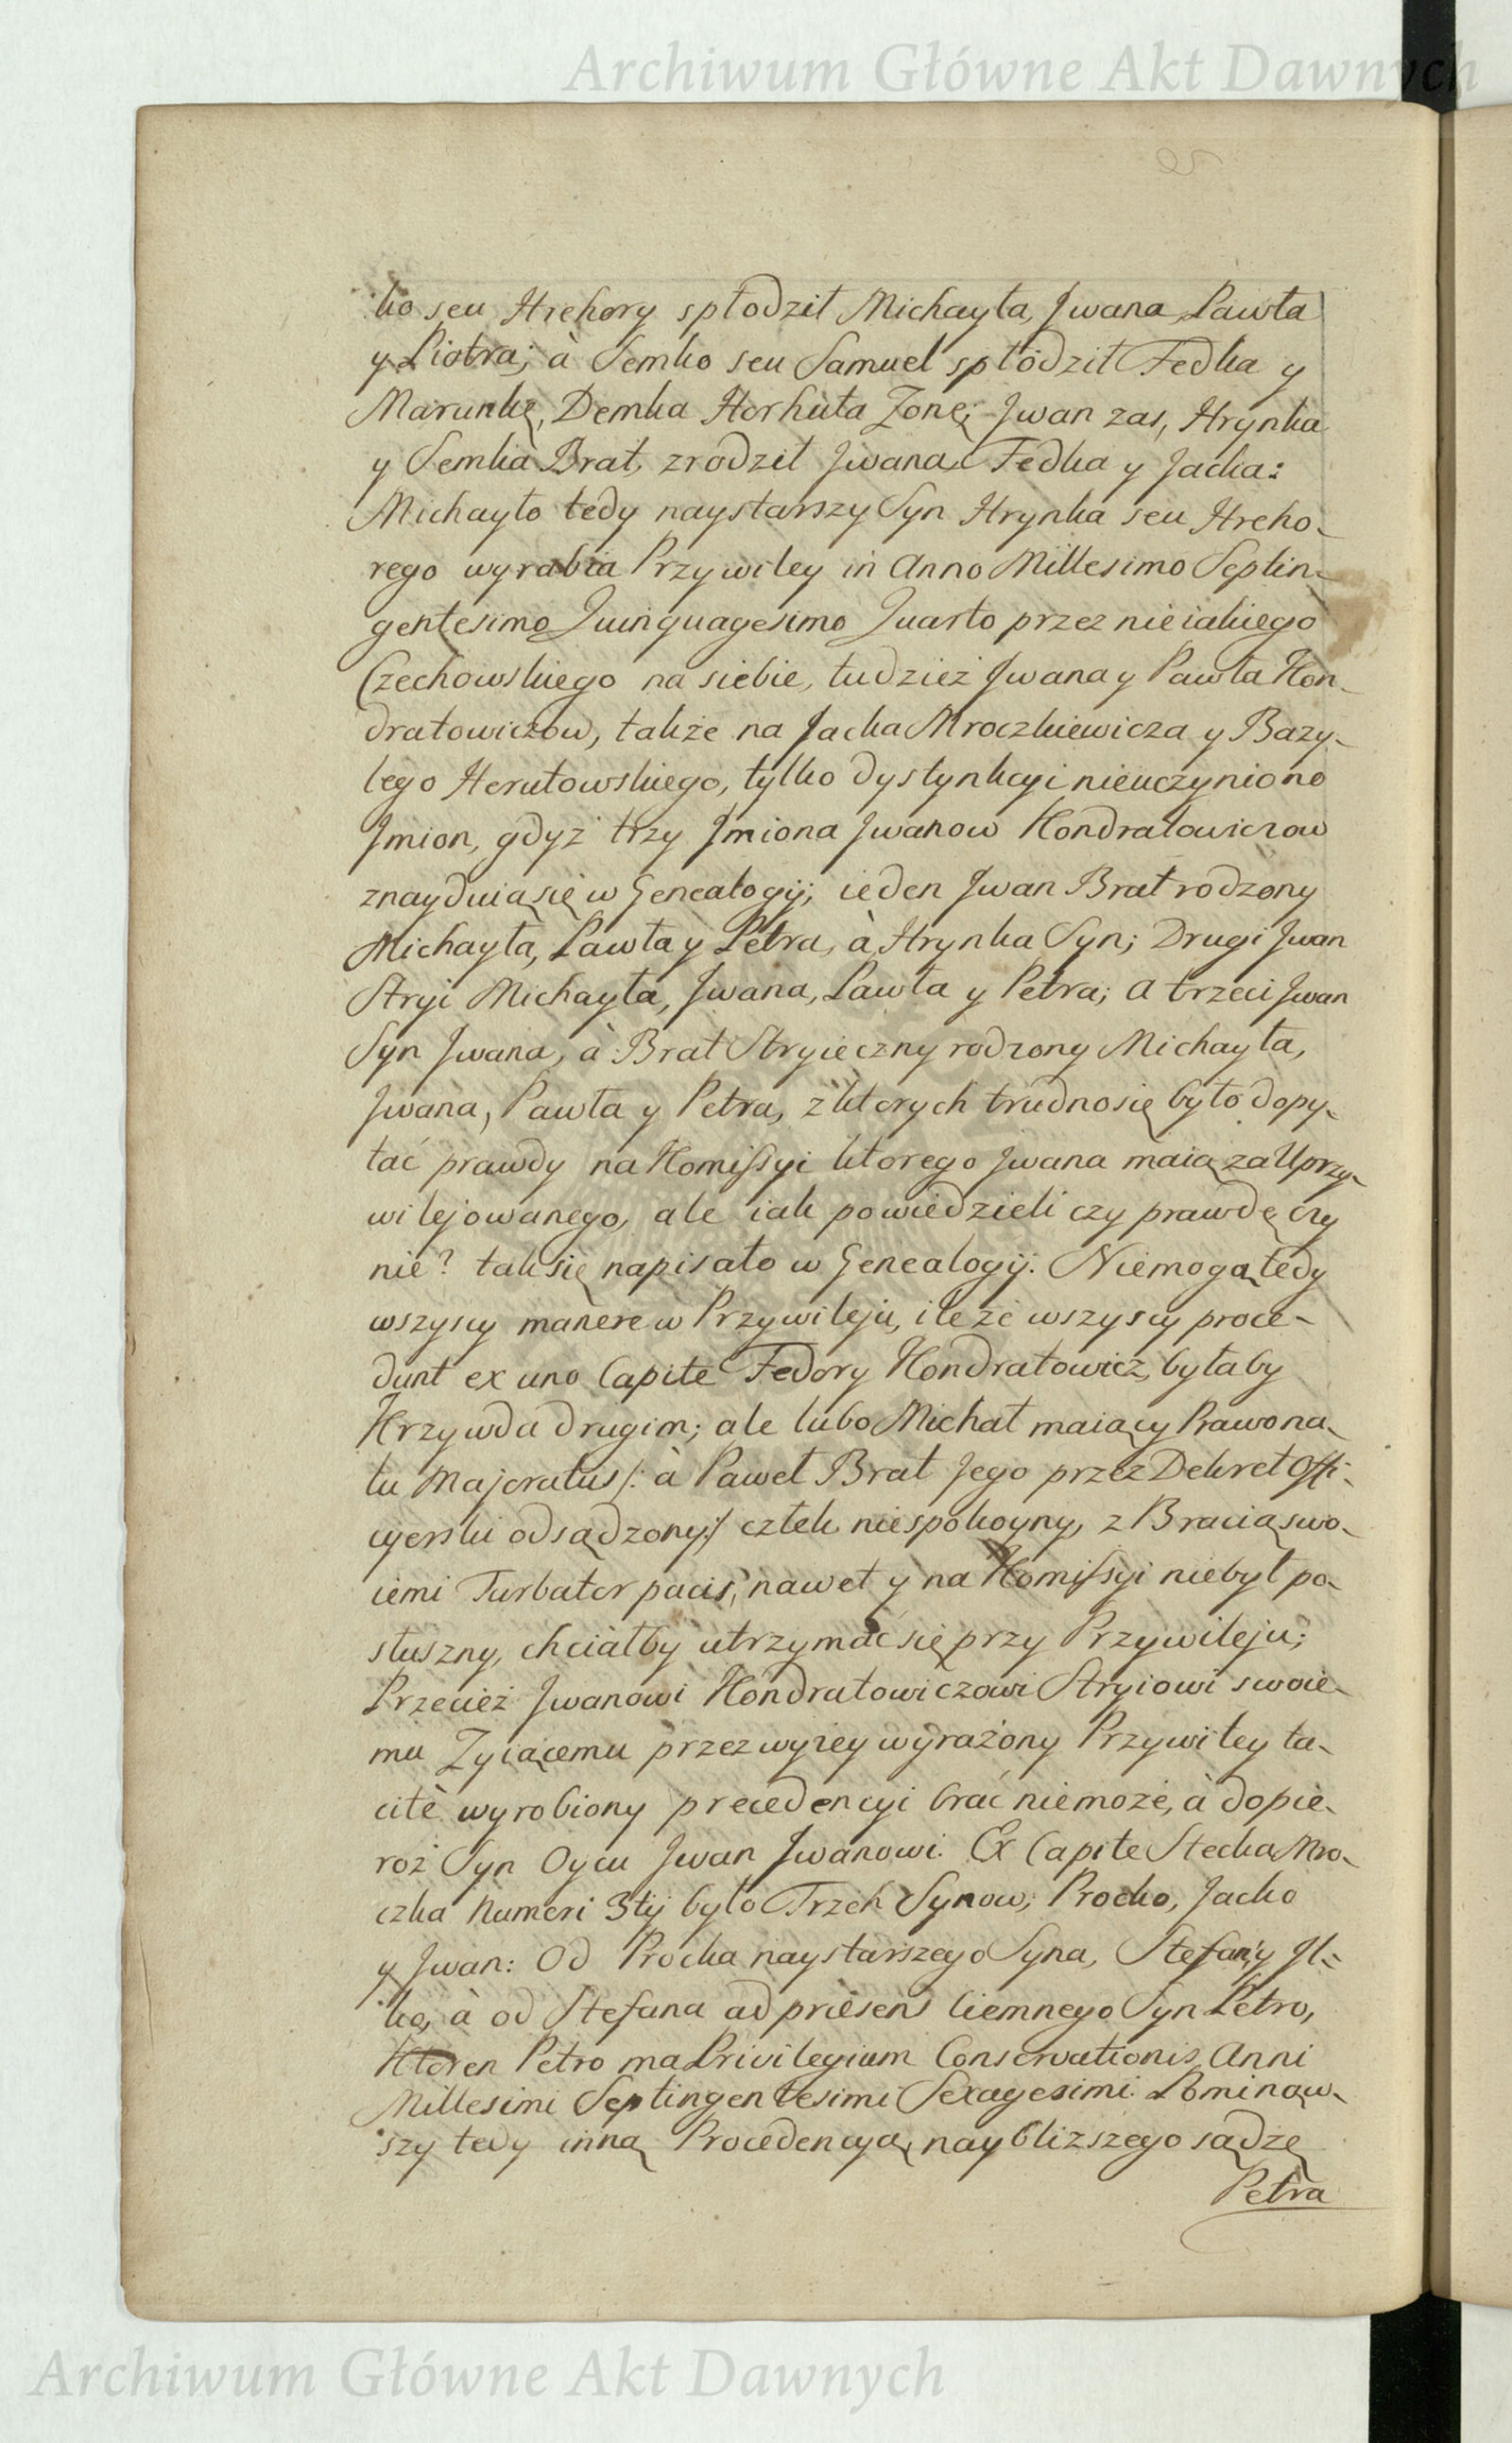 Archiwum Główne Akt Dawnych
ko seu Hrehory spłodził Michayła, Jwana, Pawła
y Piotra; à Semko seu Samuel spłodził Fedka y
Marunkę, Demka Horhuta Zonę; Jwan zas, Hrynka
y Semka Brat, zrodził Jwana, Fedka y Jacka:
Michayło tedy naystarszy Syn Hrynka seu Hreho-
rego wyrabia Przywiley in Anno Millesimo Septin-
gentesimo Quinquagesimo Quarto przez nieiakiego
Czechowskiego na siebie, tudzież Jwana y Pawła Kon-
dratowiczow, także na Jacka Mroczkiewicza y Bazy-
lego Herutowskiego, tylko dystynkcyi nieuczyniono
Jmion, gdyż trzy Jmiona Jwanow Kondratowiczow
znayduią się w Genealogij; ieden Jwan Brat rodzony
Michayła, Pawła y Petra, à Hrynka Syn; Drugi Jwan
Stryi Michayła, Jwana, Pawła y Petra; a trzeci Jwan
Syn Jwana, à Brat Stryieczny rodzony Michayła,
Jwana, Pawła y Petra, z ktorych trudno się było dopy-
tać prawdy na Komissyi ktorego Jwana maią za Uprzy-
wilejowanego, ale iak powiedzieli czy prawdę czy
nie? tak się napisało w Genealogij. Niemogą tedy
wszyscy manere w Przywileju, ile że wszyscy proce-
dunt ex uno Capite Fedory Kondratowicz, byłaby
Krzywda drugim; ale lubo Michał maiący Prawo na-
tu Majoratus /: à Paweł Brat Jego przez Dekret Offi-
cyerski odsądzony :/ człek niespokoyny, z Bracią swo-
iemi Turbator pacis, nawet y na Komissyi niebył po-
słuszny, chciałby utrzymać się przy Przywileju;
Przecież Jwanowi Kondratowiczowi Stryiowi swoie-
mu Zyiącemu przez wyżey wyrażony Przywiley ta-
citè wyrobiony precedencyi brać niemoże, à dopie-
roż Syn Oycu Jwan Jwanowi. Ex Capite Stecka Mro-
czka Numeri 3tij było Trzeh Synow; Procko, Jacko
y Jwan: Od Procka naystarszego Syna, Stefan y Jl-
ko, à od Stefana ad præsens Ciemnego Syn Petro,
Ktoren Petro ma Privilegium Conservationis Anni
Millesimi Septingentesimi Sexagesimi. Pominąw-
szy tedy inną Procedencyą, naybliższego sądzę
Petra
Archiwum Główne Akt Dawnych